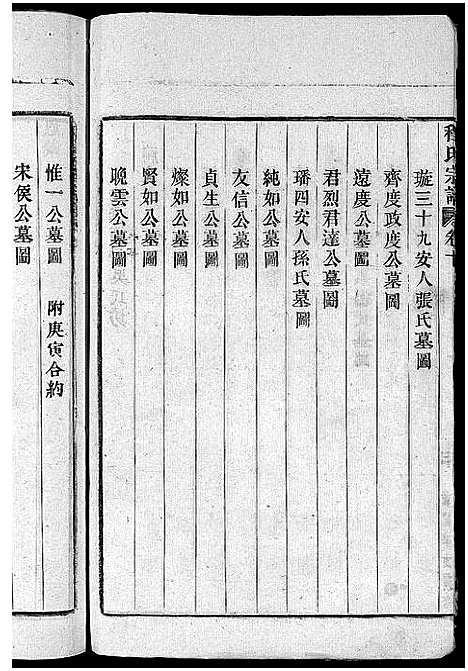 程氏宗譜 卷十
璇三十九安人張氏墓圖
齊度政度公墓圖
遠度公墓圖
君烈君達公墓圖
璠四安人孫氏墓圖
純如公墓圖
友信公墓圖
貞生公墓圖
燦如公墓圖
賢如公墓圖
晚雲公墓圖
惟一公墓圖 附庚寅合約
宋侯公墓圖